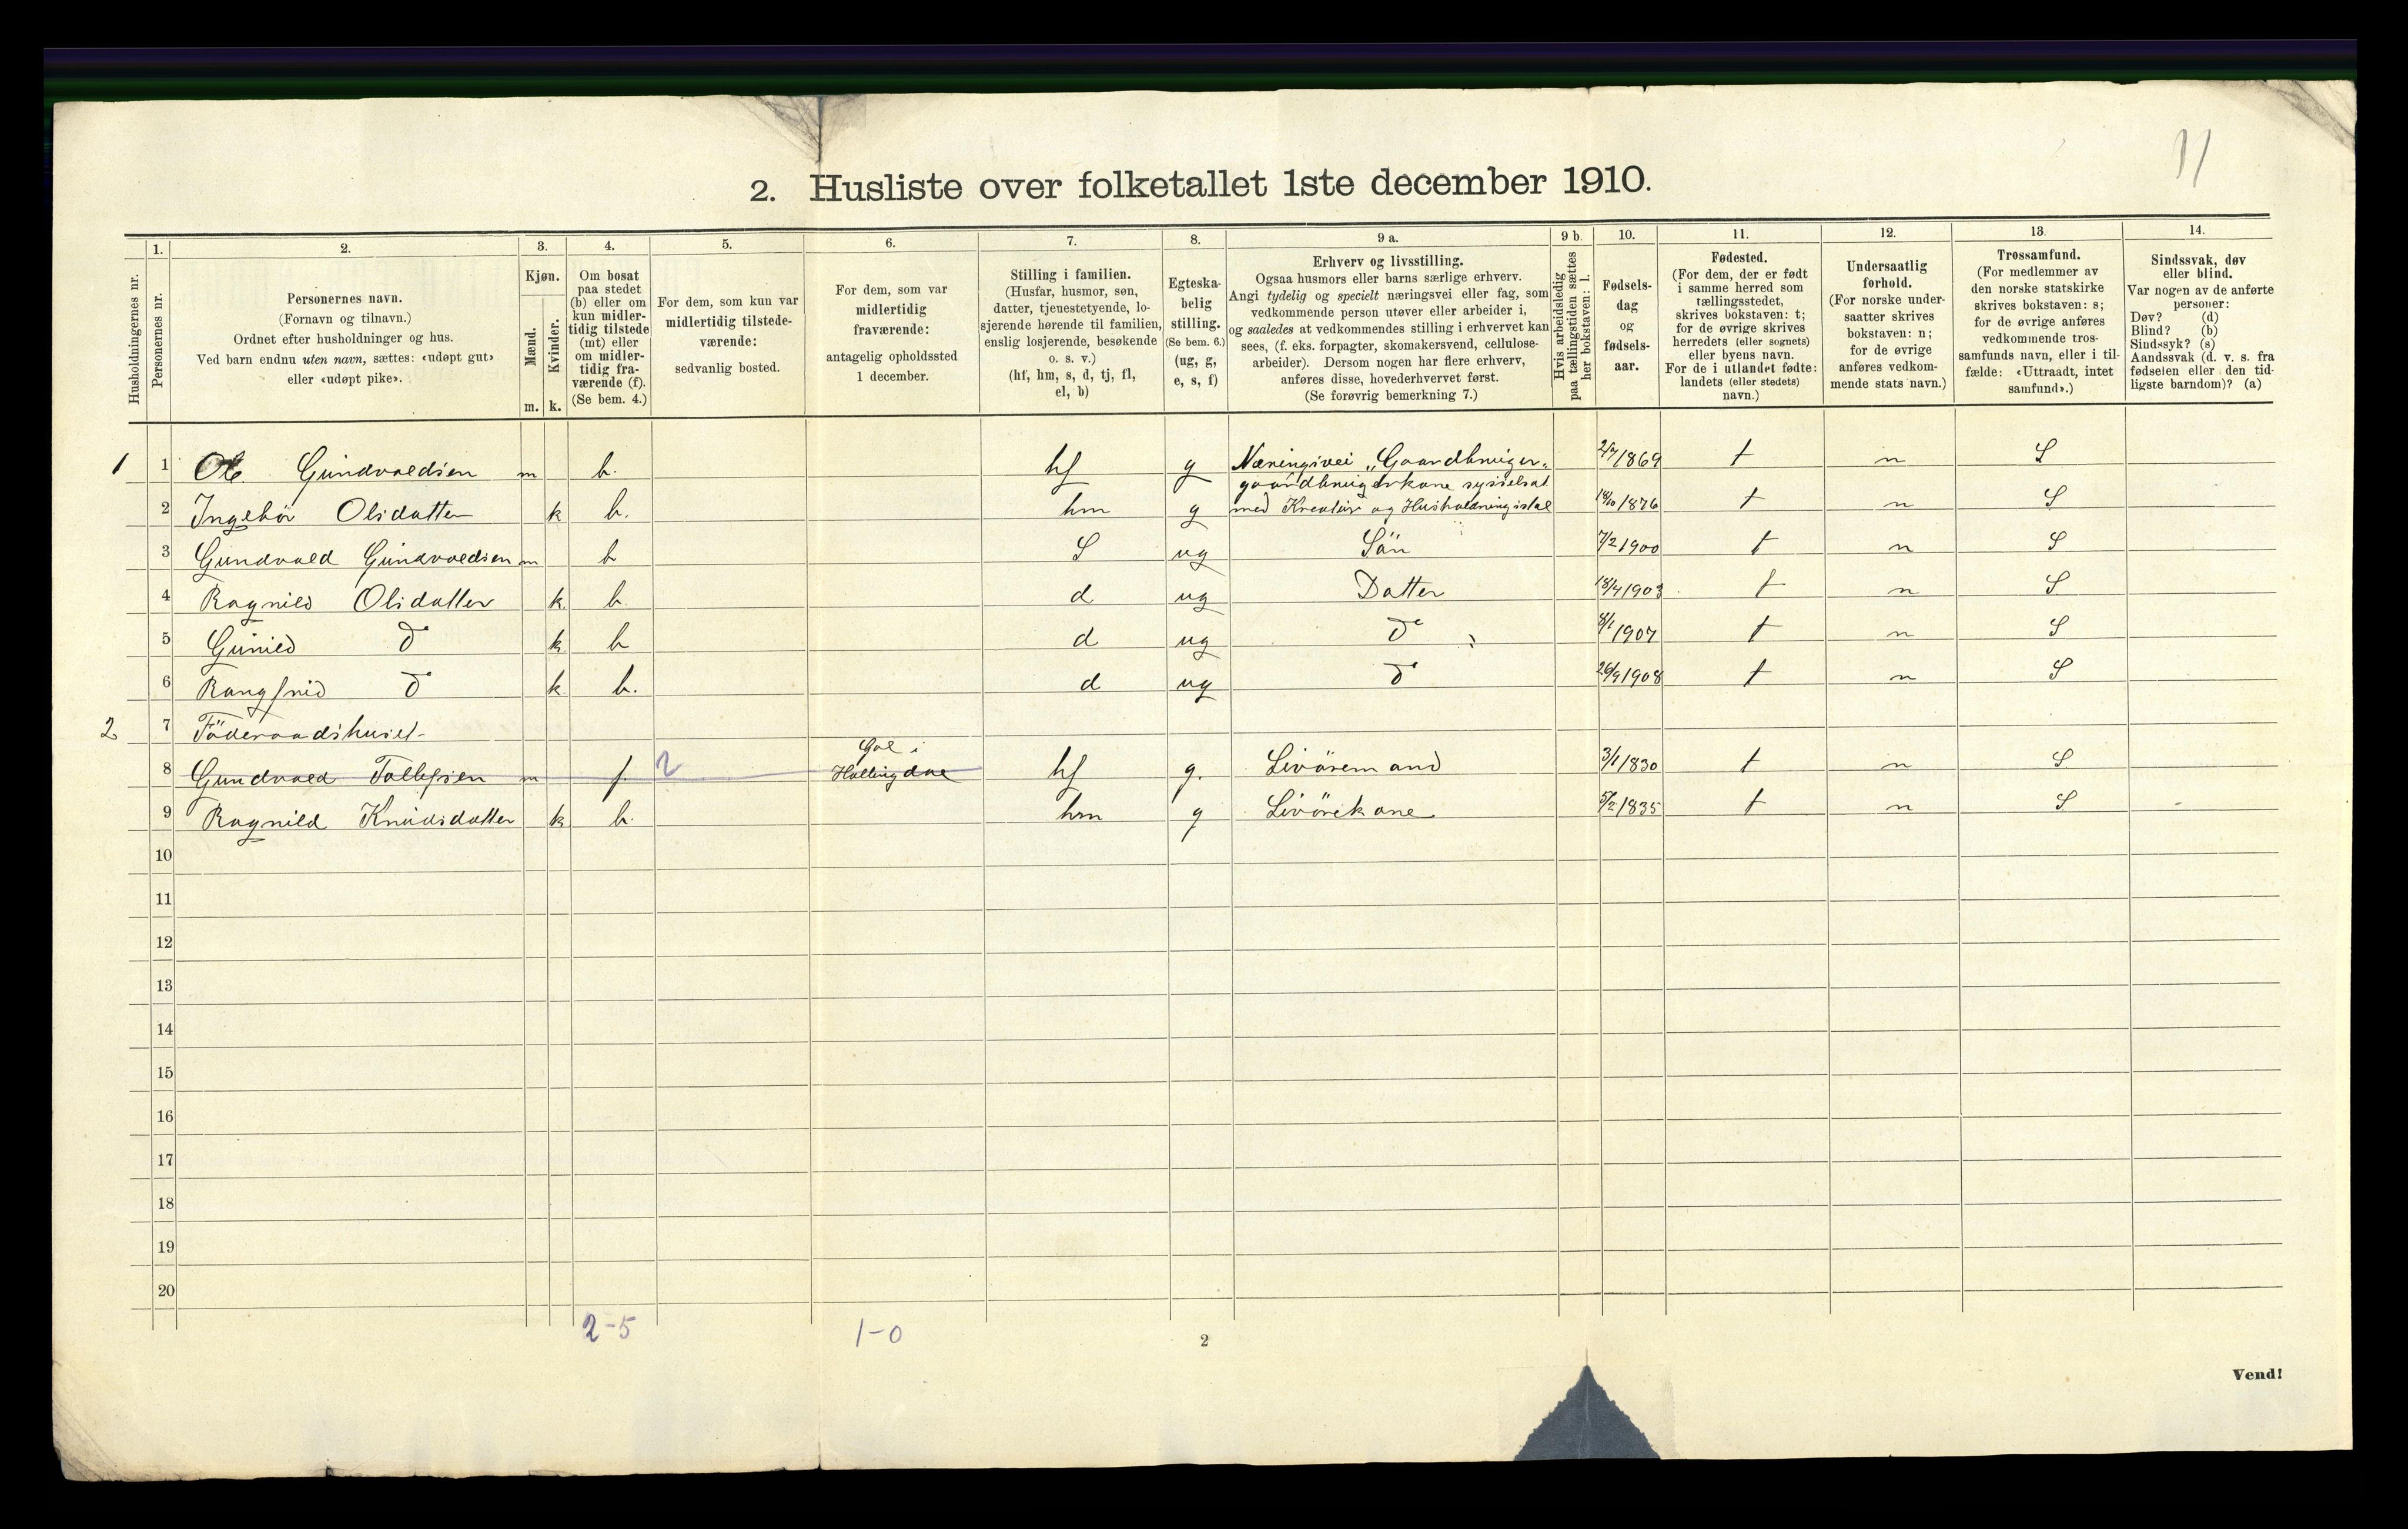 11
2. Husliste over folketallet 1ste december 1910.
Husholdningernes nr.
1.
Personernes nr.
2.
Personernes navn.
(Fornavn og tilnavn.)
Ordnet efter husholdninger og hus.
Ved barn endnu uten navn, sættes: «udøpt gut»
eller «udøpt pike».
3.
Kjøn.
Mænd.
Kvinder.
m. k.
4.
Om bosat
paa stedet
(b) eller om
kun midler-
tidig tilstede
(mt) eller
om midler-
tidig fra-
værende (f).
(Se bem. 4.)
5.
For dem, som kun var
midlertidig tilstede-
værende:
sedvanlig bosted.
6.
For dem, som var
midlertidig
fraværende:
antagelig opholdssted
1 december.
7.
Stilling i familien.
(Husfar, husmor, søn,
datter, tjenestetyende, lo-
sjerende hørende til familien,
enslig losjerende, besøkende
o. s. v.)
(hf, hm, s, d, tj, fl,
el, b)
8.
Egteska-
belig
stilling.
(Se bem. 6.)
(ug, g,
e, s, f)
9 a.
Erhverv og livsstilling.
Ogsaa husmors eller barns særlige erhverv.
Angi tydelig og specielt næringsvei eller fag, som
vedkommende person utøver eller arbeider i,
og saaledes at vedkommendes stilling i erhvervet kan
sees, (f. eks. forpagter, skomakersvend, cellulose-
arbeider). Dersom nogen har flere erhverv,
anføres disse, hovederhvervet først.
(Se forøvrig bemerkning 7.)
9 b.
Hvis arbeidsledig
paa tællingstiden sættes
her bokstaven: l.
10.
Fødsels-
dag
og
fødsels-
aar.
11.
Fødested.
(For dem, der er født
i samme herred som
tællingsstedet,
skrives bokstaven: t;
for de øvrige skrives
herredets (eller sognets)
eller byens navn.
For de i utlandet fødte:
landets (eller stedets)
navn.)
12.
Undersaatlig
forhold.
(For norske under-
saatter skrives
bokstaven: n;
for de øvrige
anføres vedkom-
mende stats navn.)
13.
Trossamfund.
(For medlemmer av
den norske statskirke
skrives bokstaven: s;
for de øvrige anføres
vedkommende tros-
samfunds navn, eller i til-
fælde: «Uttraadt, intet
samfund».)
14.
Sindssvak, døv
eller blind.
Var nogen av de anførte
personer:
Døv? (d)
Blind? (b)
Sindssyk? (s)
Aandssvak (d. v. s. fra
fødselen eller den tid-
ligste barndom)? (a)
1 1 Ole Gundvaldsen m b. hf g Næringsvei „Gaardbruger„ 1869 t n S
gaardbrugerkone sysselsat
2 Ingebör Olsdatter k b. hm g med Kreatur og Husholdningsstel 18/10 1876 t n S
3 Gundvald Gundvaldsen m b S ug Sön 7/2 1900 t n S
4 Ragnild Olsdatter k. b d ug Datter 18/4 1903 t n S
5 Gunild do k b d ug do 8/1 1907 t n S
6 Rangfrid do k b. d ug do 26/9 1908 t n S
2 7 Föderaadshuset
Gol i
8 Gundvald Tollefsen m f. 2 Hallingdal hf g. Livöremand 3/1 1830 t n S
9 Ragnild Knudsdatter k b. hm g Livörekone 5/2 1835 t n S -
10
11
12
13
14
15
16
17
18
19
20
2-5 1-0
2
Vend!